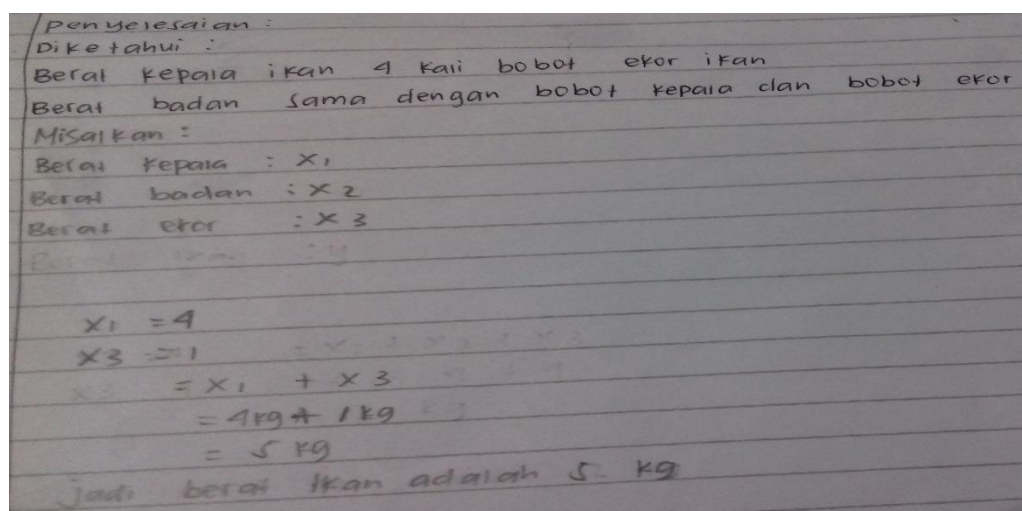 Penyelesaian :
Diketahui :
Berat kepala ikan 4 kali bobot ekor ikan
Berat badan sama dengan bobot kepala dan bobot ekor
Misalkan :
Berat kepala : x1
Berat badan : x2
Berat ekor : x3
x1 = 4
x3 = 1
= x1 + x3
= 4kg + 1 kg
= 5 kg
Jadi berat ikan adalah 5 kg